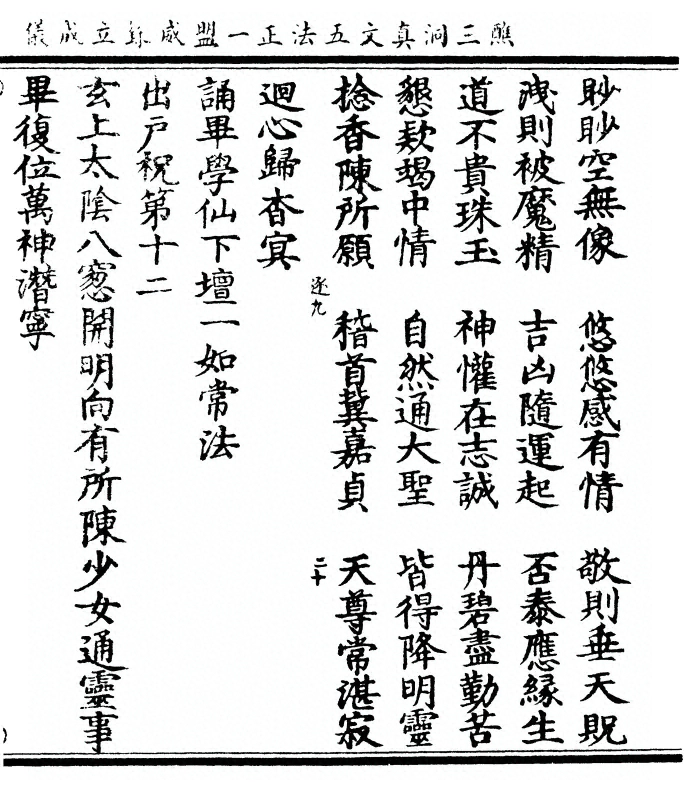 醮三洞真文五法正一盟威籙立成儀
眇眇空無像 悠悠感有情 敬則垂天貺
洩則被魔精 吉凶隨運起 否泰應緣生
道不貴珠玉 神懽在志誠 丹碧盡勤苦
懇款竭中情 自然通大聖 皆得降明靈
捻香陳所願 稽首冀嘉貞 天尊常湛寂
逐九 二十
迴心歸杳冥
誦畢學仙下壇一如常法
出戶祝第十二
玄上太陰八窓開明向有所陳少女通靈事
畢復位萬神潛寧